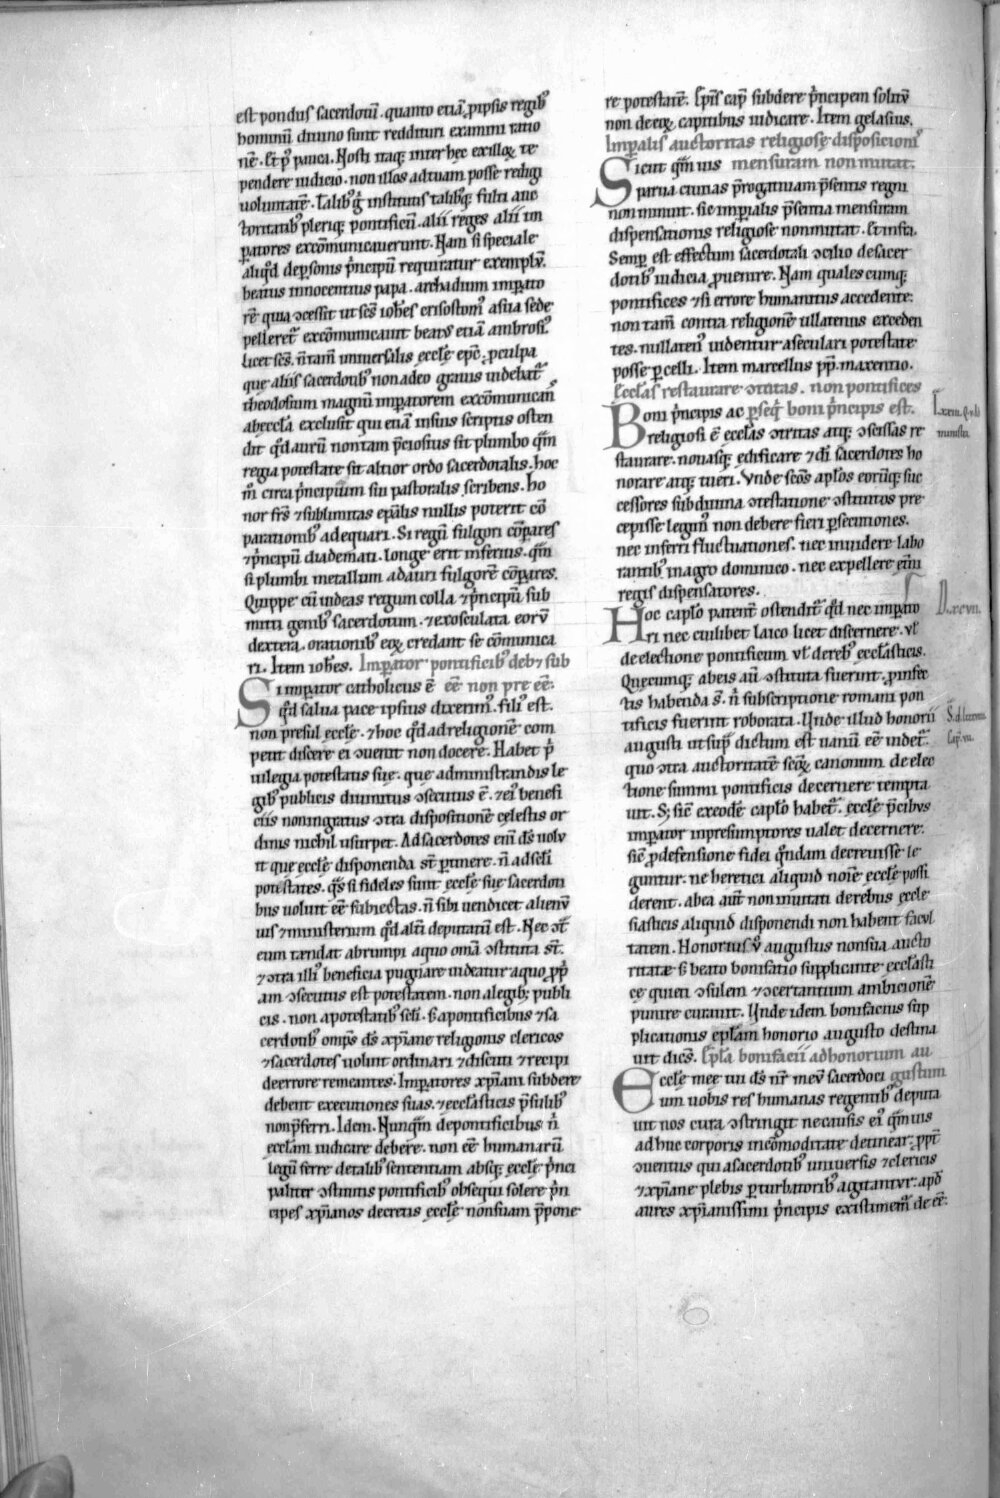 est pondus sacerdotū. quanto etiā ꝓ ipsis regibꝰ
hominū diuino sunt reddituri examini ratio
nē. Et pꝰ pauca. Nosti itaqꝫ inter hęc ex illoꝝ te
pendere iudicio. non illos ad tuam posse redigi
uoluntatē. Talibꝰ ḡ institutis talibꝰqꝫ fulti auc
toritatibꝰ pleriqꝫ pontificū. alii reges alii im
ꝑatores excōmunicauerunt. Nam si speciale
aliqͥd de ꝑsonis pͥncipū requiratur exemplū.
beatus innocentius papa. archadium imꝑato
rē quia ↄsessit ut scs̄ iohēs crisostomꝰ a sua sede
pelleretᷣ excōmunicauit beatꝰ etiā ambrosiꝰ
licet scs̄. n̄ tam̄ uniuersalis ecclę epc̄. ꝓ culpa
que aliis sacerdotibꝰ non adeo grauis uidebatᷣ
theodosium magnū imꝑatorem excōmunicās
ab ecclā exclusit qui etiā in suis scriptis osten
dit qͦd aurū non tam p̄ciosius sit plumbo qͣm̄
regia potestate sit altior ordo sacerdotalis. hoc
m̄ circa pͥncipium sui pastoralis scribens. ho
nor frs̄ ⁊ sublimitas ep̄alis nullis poterit cō
parationibꝰ adequari. Si regū fulgori cōpares
⁊ pͥncipū diademati. longe erit inferius. qͣm̄
si plumbi metallum ad auri fulgorē cōpares.
Quippe cū uideas regum colla ⁊ pͥncipū sub
mitti genibꝰ sacerdotum. ⁊ exosculata eorū
dextera. orationibꝰ eoꝝ credant se cōmunica
ri. Item iohēs. Imꝑator pontificibꝰ debꝫ sub
Si imꝑator catholicus ē eē non pre eē.
qͦd salua pace ipsius dixerimꝰ. filiꝰ est.
non presul ecclę. ⁊ hoc qͦd ad religionē com
petit discere ei ↄuenit non docere. Habet pͥ
uilegia potestatis suę. que administrandis le
gibꝰ publicis diuinitus ↄsecutus ē. ⁊ eiꝰ benefi
ciis non ingratus ↄtra dispositionē cęlestis or
dinis nichil usurpet. Ad sacerdotes eni̅ ds̄ uolu
it que ecclę disponenda st̄ ꝑtinere. n̄ ad scl̄i
potestates. qͣs si fideles sunt ecclę suę sacerdoti
bus uoluit eē subiectas. n̄ sibi uendicet alienū
ius ⁊ ministerium qͦd alt̄i deputatū est. Nec ↄtͣ
eum tendat abrumpi a quo om̄a ↄstituta st̄.
⁊ ↄtra illiꝰ beneficia pugnare uideatur a quo ꝓpͥ
am ↄsecutus est potestatem. non a legibꝫ publi
cis. non a potestatibꝰ scl̄i. s̄ a pontificibus ⁊ sa
cerdotibꝰ omps̄ ds̄ xp̄ianę religionis clericos
⁊ sacerdotes uoluit ordinari ⁊ discuti ⁊ recipi
de errore remeantes. Imꝑatores xp̄iani subdere
debent executiones suas. ⁊ ecclāsticis p̄sulibꝰ
non p̄ferri. Idem. Nunqͣm̄ de pontificibus n̄
ecclām iudicare debere. non eē humanarū
legū ferre de talibꝰ sententiam absqꝫ ecclę pͥnci
paliter ↄstitutis pontificibꝰ obsequi solere pͥn
cipes xp̄ianos decretis ecclę non suam p̄pone
re potestatē. Ep̄is cap̄ subdere pͥncipem solitū
non de eoꝝ capitibus iudicare. Item gelasius.
Imꝑialis auctoritas religiosę disposicionꝰ
Sicut qͣm uis mensuram non mutat.
parua ciuitas p̄rogatiuam p̄sentis regni
non minuit. sic imꝑialis p̄sentia mensuram
dispensationis religiosę non mutat. Et infͣ.
Semꝑ est effectum sacerdotali ↄcilio de sacer
dotibꝰ iudicia ꝓuenire. Nam quales cumqꝫ
pontifices ⁊ si errore humanitus accedente.
non tam̄ contra religionē ullatenus exceden
tes. nullatenꝰ uidentur a seculari potestate
posse ꝑcelli. Item marcellus pp̄. maxentio.
Ecclās restaurare ↄtritas. non pontifices
Boni pͥncipis ac ꝑseqͥ boni pͥncipis est.
religiosi ē ecclās ↄtritas atqꝫ ↄscissas re
staurare. nouasqꝫ edificare ⁊ di̅ sacerdotes ho
norare atqꝫ tueri. Vnde scōs ap̄los eorūqꝫ suc
cessores sub diuina ↄtestatione ↄstitutos pre
cepisse legimꝰ non debere fieri ꝑsecutiones.
nec inferri fluctuationes. nec inuidere labo
rantibꝰ in agro dominico. nec expellere eti̅
regis dispensatores.
Hoc caplo patent̄ ostenditᷣ qͦd nec imꝑato
ri nec cuilibet laico licet discernere. ul̄
de electione pontificum ul̄ de rebꝰ ecclāsticis.
Quęcumqꝫ ab eis aū ↄstituta fuerint. ꝓ infec
tis habenda s̄. n̄ subscriptione romani pon
tificis fuerint roborata. Unde illud honorii
augusti ut supͣ dictum est uanū eē uidetᷣ.
quo ↄtra auctoritatē scōꝝ canonum de elec
tione summi pontificis decernere tempta
uit. Sꝫ sic̄ ex eodē caplo habetᷣ. ecclę p̄cibus
imꝑator in presumptores ualet decernere.
sic̄ ꝓ defensione fidei qͦndam decreuisse le
guntur. ne heretici aliquid noīe ecclę possi
derent. ab ea aut̄ non inuitati de rebus eccle
siasticis aliquid disponendi non habent facul
tatem. Honorius ū augustus non sua aucto
ritate s̄ beato bonifatio supplicante ecclāsti
cę quieti ↄsulem ⁊ ↄcertantium ambicionē
punire curauit. Unde idem bonifacius sup
plicationis ep̄lam honorio augusto destina
uit dicēs. Ep̄la bonifacii ad honorium au
Ecclę meę cui ds̄ nr̄ meū sacerdoci gustum
um uobis res humanas regentibꝰ deputa
uit nos cura ↄstringit ne causis eiꝰ qͣm uis
ad huc corporis incōmoditate detinear. ꝓpt̄
ↄuentus qui a sacerdotibꝰ uniuersis ⁊ clericis
⁊ xp̄ianę plebis ꝑturbatoribꝰ agitantur. apd̄
aures xp̄ianissimi pͥncipis existimemᷣ de eē.
D. xcvii.